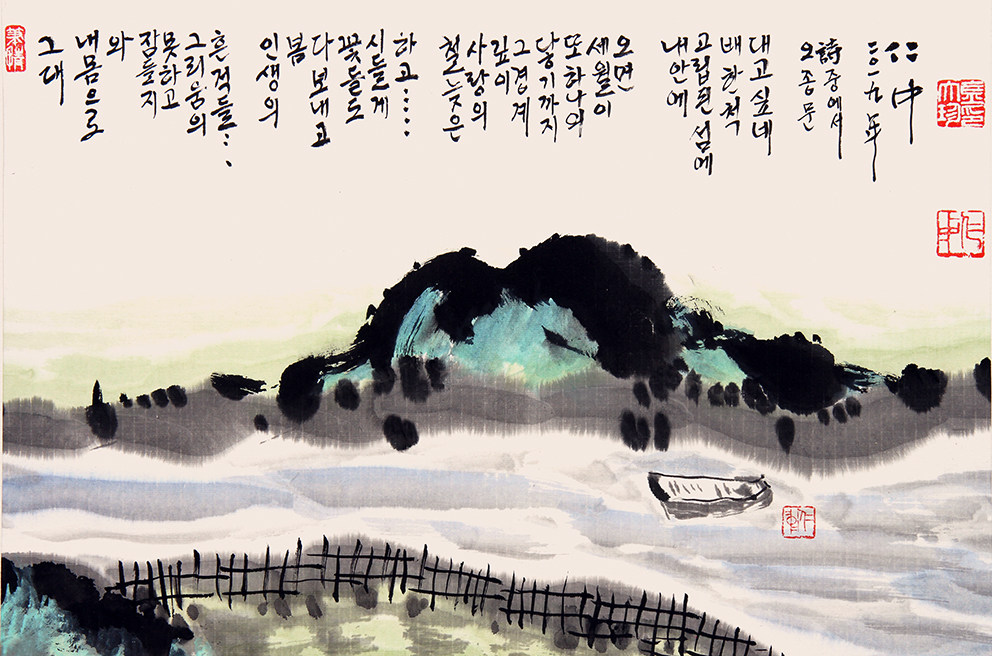 그대
내 몸으로
와
잠들지
못하고
그리움의
흔적들...
인생의
봄
다 보내고
꽃들도
시들게
하고.....
철늦은
사랑의
깊이
그 경계
닿기까지
또 하나의
세월이
오면
내 안에
고립된 섬에
배 한 척
대고 싶네
오종문
詩 중에서
二〇一九年